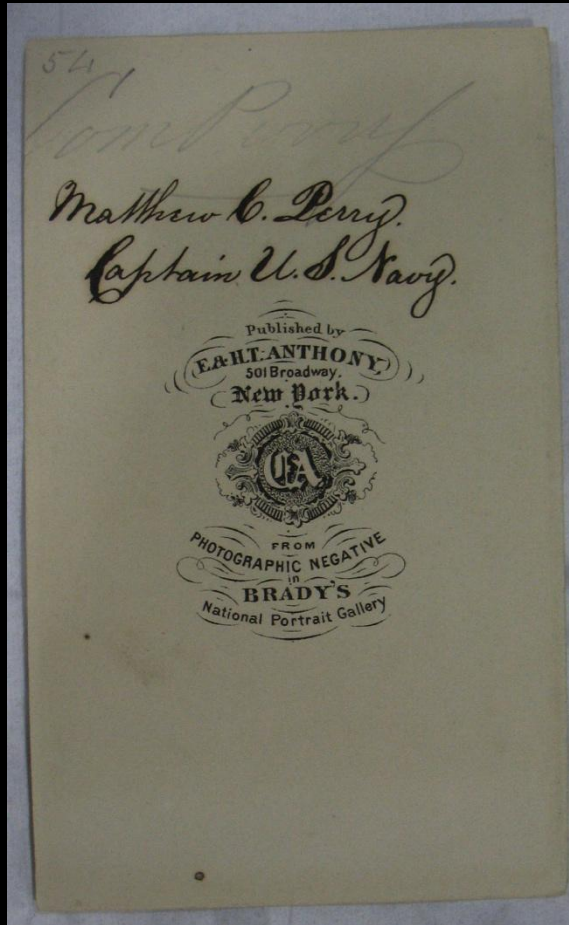 54
Com Perry
Matthew C. Perry.
Captain U. S. Navy.
Published by
E. & H.T. ANTHONY,
501 Broadway.
New York.
FROM
PHOTOGRAPHIC NEGATIVE
in
BRADY'S
National Portrait Gallery